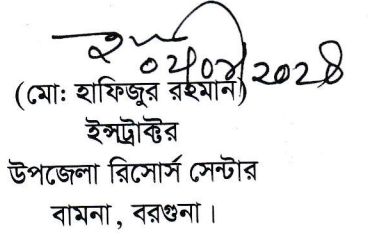 (মো: হাফিজুর রহমান)
ইন্সট্রাক্টর
উপজেলা রিসোর্স সেন্টার
বামনা, বরগুনা।